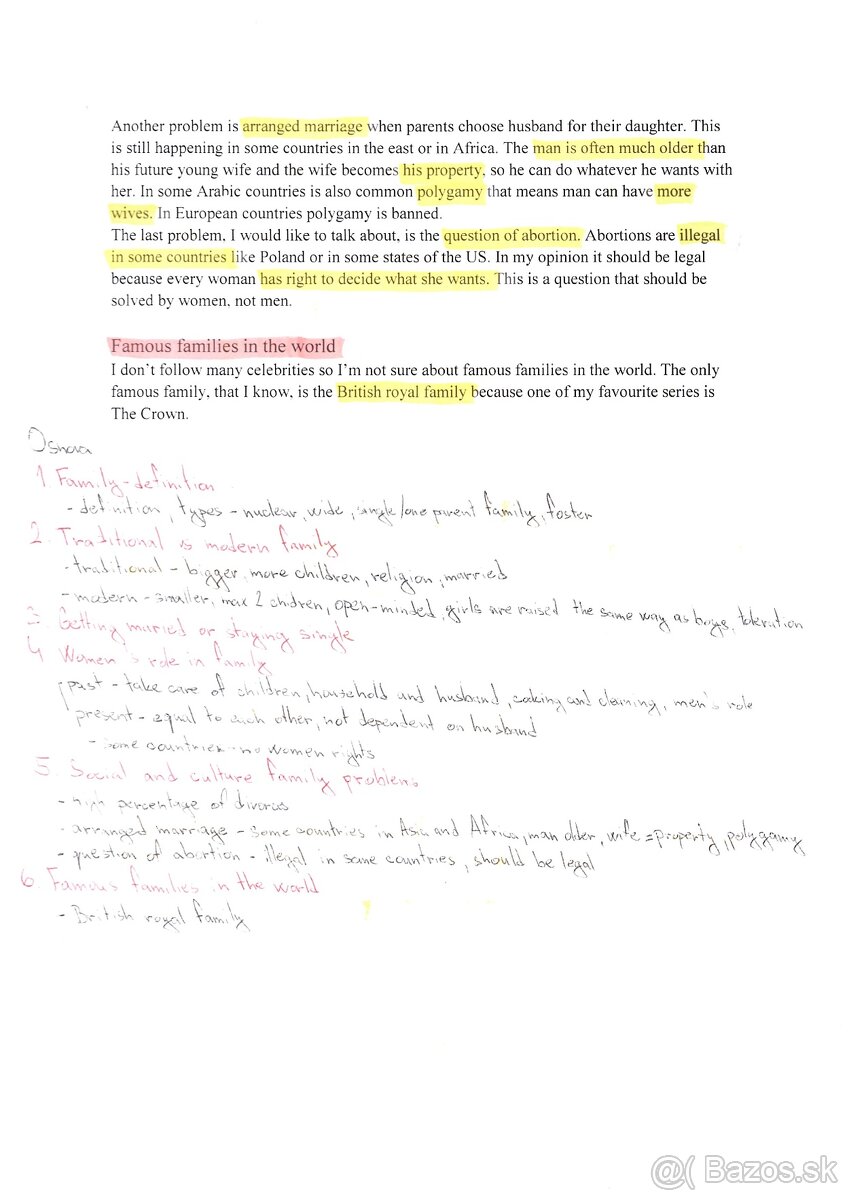 Another problem is arranged marriage when parents choose husband for their daughter. This
is still happening in some countries in the east or in Africa. The man is often much older than
his future young wife and the wife becomes his property, so he can do whatever he wants with
her. In some Arabic countries is also common polygamy that means man can have more
wives. In European countries polygamy is banned.
The last problem, I would like to talk about, is the question of abortion. Abortions are illegal
in some countries like Poland or in some states of the US. In my opinion it should be legal
because every woman has right to decide what she wants. This is a question that should be
solved by women, not men.
Famous families in the world
I don't follow many celebrities so I'm not sure about famous families in the world. The only
famous family, that I know, is the British royal family because one of my favourite series is
The Crown.
Osnova
1. Family - definition
- definition, types - nuclear, wide, single/one parent family, foster
2. Traditional vs modern family
- traditional - bigger, more children, religion, married
- modern - smaller, max 2 chidren, open-minded, girls are raised the same way as boys, toleration
3. Getting maried or staying single
4. Women's role in family
past - take care of children, household and husband, cooking and cleaning, men's role
present - equal to each other, not dependent on husband
- some countries - no women rights
5. Social and culture family problems
- high percentage of divorces
- arranged marriage - some countries in Asia and Africa, man older, wife = property, polygamy
- question of abortion - illegal in some countries, should be legal
6. Famous families in the world
- British royal family
@( Bazos.sk